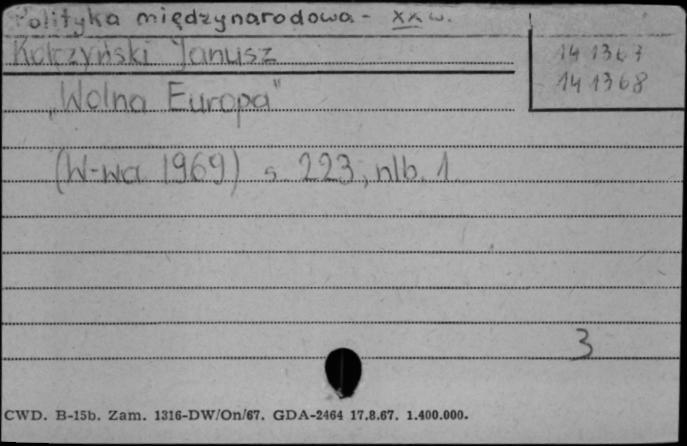 Polityka międzynarodowa - XX w.
Kolczyński Janusz
141367
141368
„Wolna Europa"
(W-wa 1969) s. 223, nlb. 1
3
CWD. B-15b. Zam. 1316-DW/On/67. GDA-2464 17.8.67. 1.400.000.